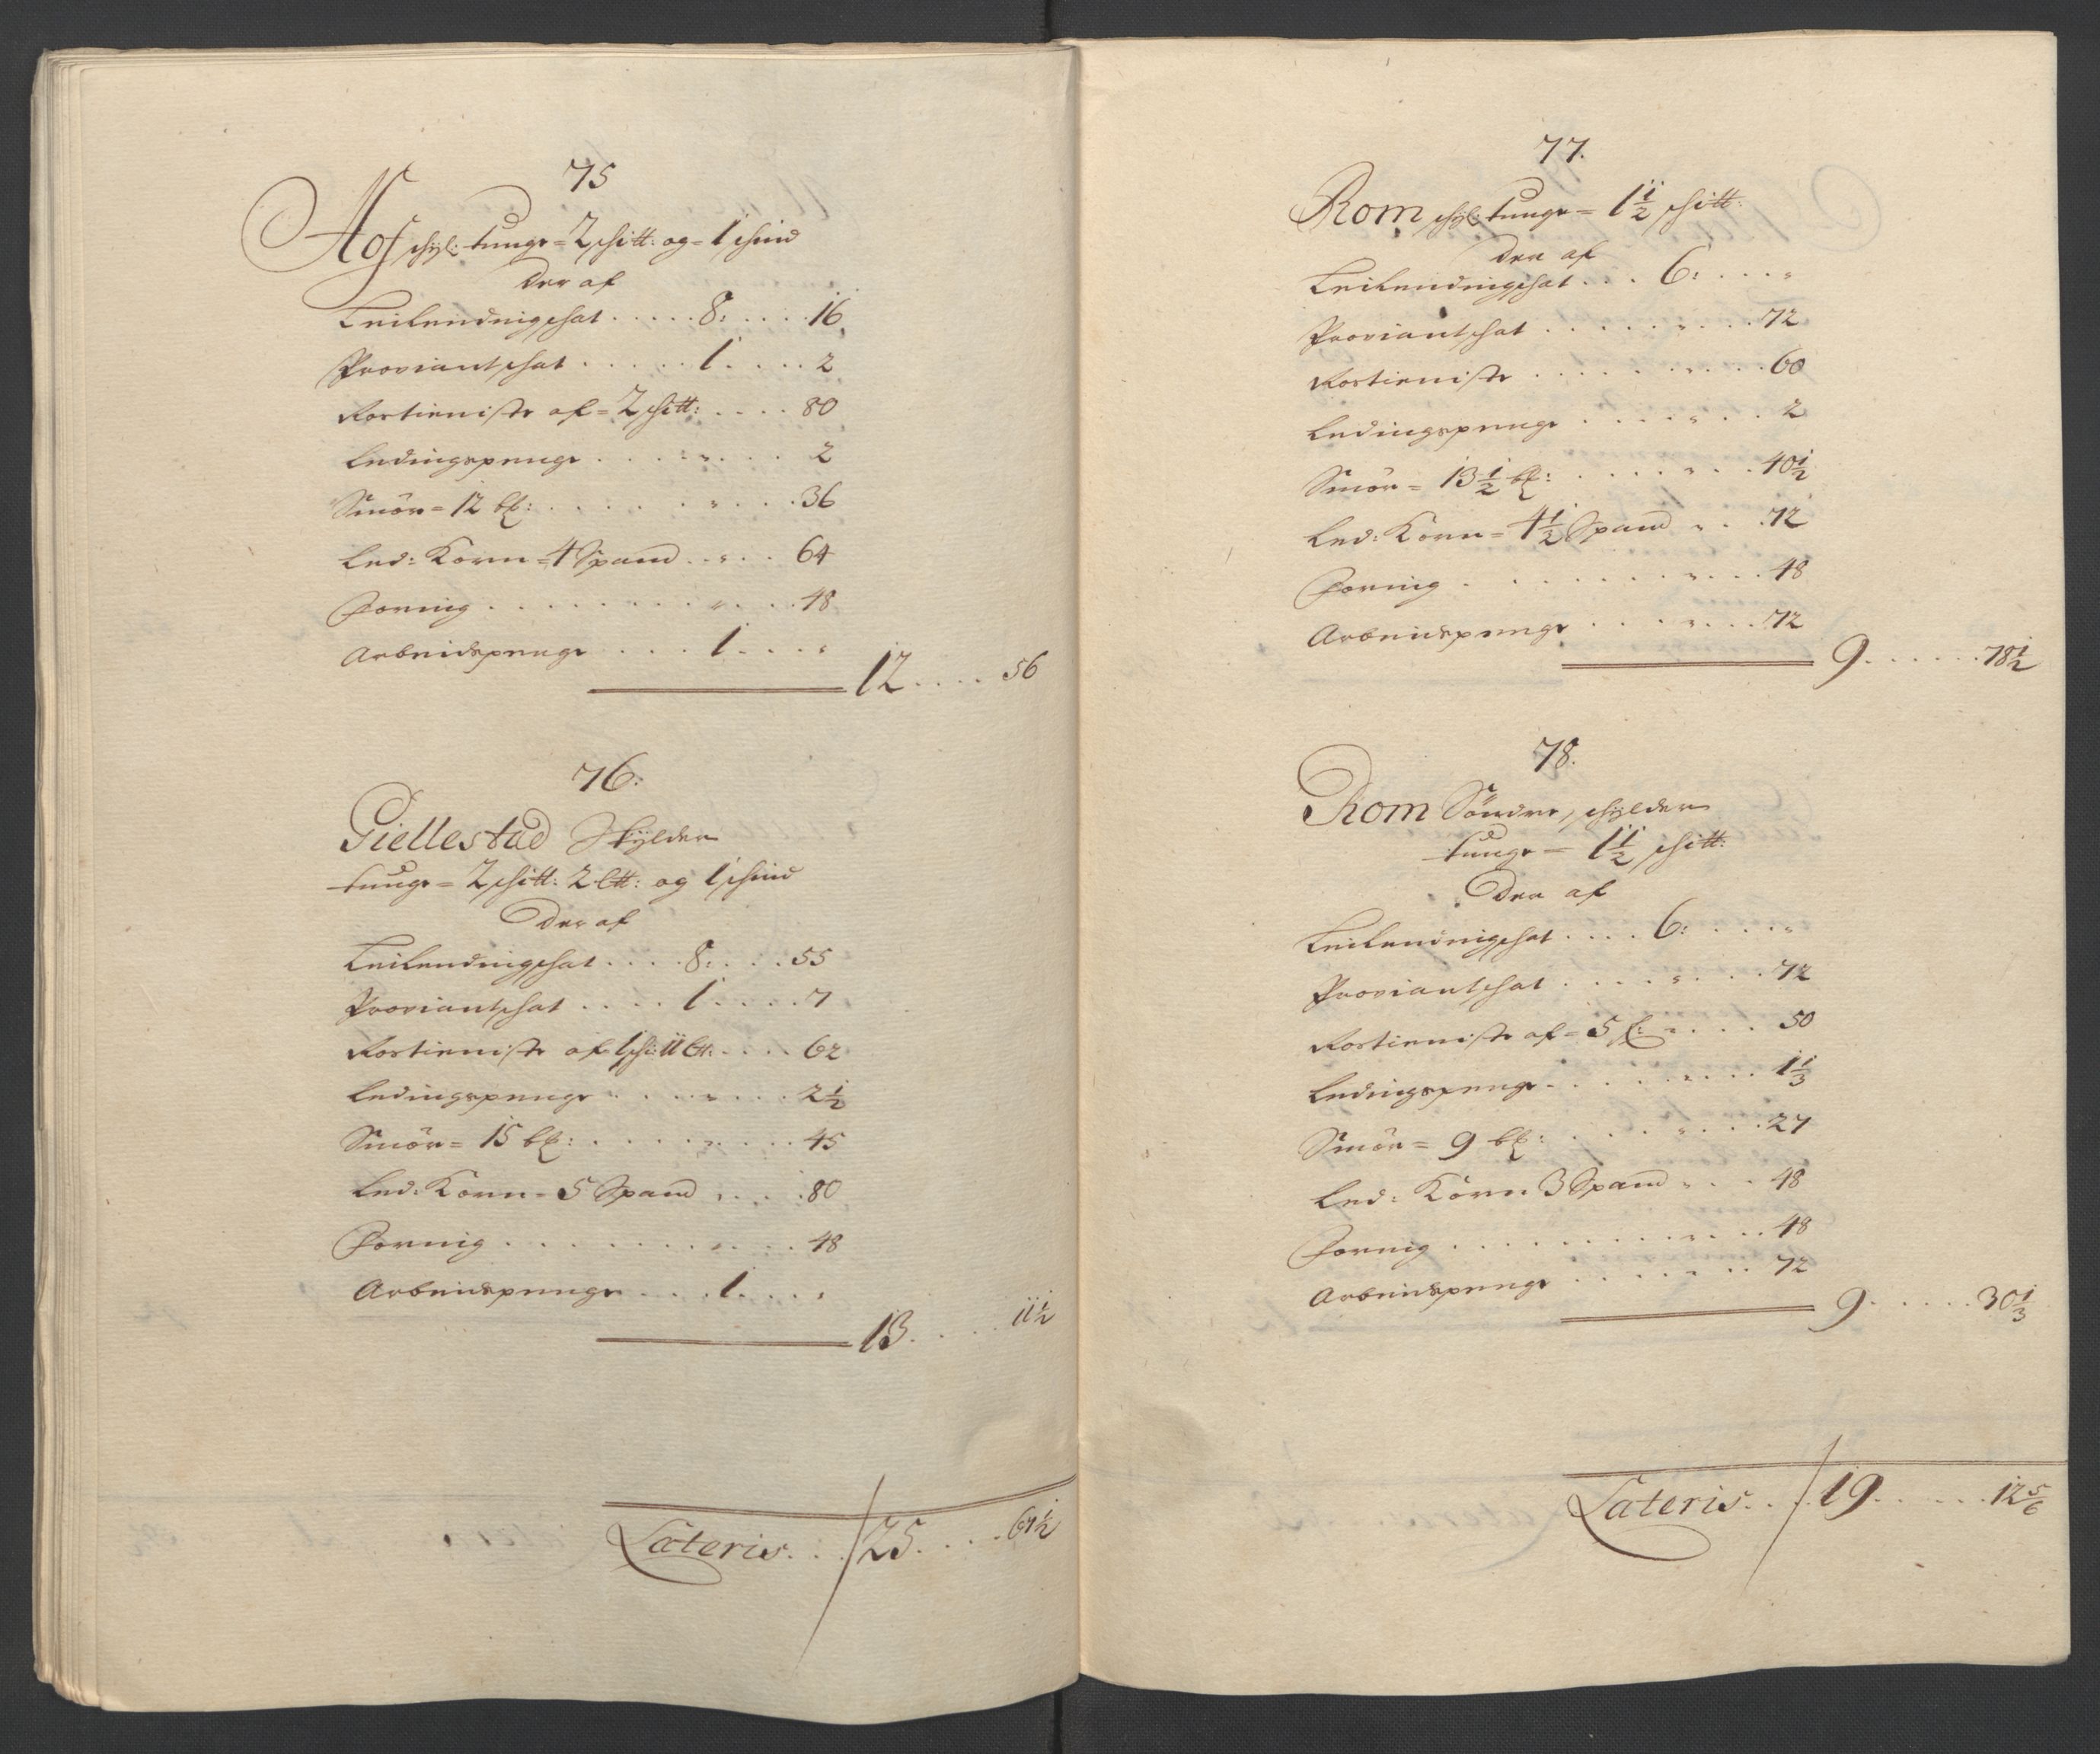 75
Hof schyl: tunge = 2 schitt: og = 1 schind
Der af
Leilendingschat . . . . . 8: . . . . 16
Proviantschat . . . . . 1 . . . . 2
Rostieniste af = 2 schitt: . . . . 80
Ledingspenge . . . . „ . . . . 2
Smör = 12 bl: . . . . . . „ . . . 36
Led: Korn = 4 Spand . . „ . . 64
Foring . . . . . . . . . „ . . . 48
Arbeidspenge . . . 1 . . . „
12 . . . . 56
76:
Giellestad Skylder
tunge = 2 schitt: 2 Ltt: og 1 schind
Der af
Leilendingschat . . . . 8: . . . 55
Proviantschat . . . . 1 . . . . 7
Rostieniste af 1 sh: 11 Ltt: . . . . 62
Ledingspenge . . . . „ . . . 2 1/2
Smör = 15 bl: . . . . . „ . . . 45
Led: Korn = 5 Spand „ . . . 80
Foring . . . . . . . . . „ . . . 48
Arbeidspenge . . . 1 . . . „
13 . . . . 11 1/2
Lateris . . . 25 . . . . 67 1/2
77.
Rom schyl: tunge = 1 1/2 schitt:
Der af
Leilendingschat . . . 6: . . . „
Proviantschat . . . . . . „ . . . 72
Rostieniste . . . . . . . „ . . . 60
Ledingspenge . . . . . „ . . . 2
Smör = 13 1/2 bl: . . . . . „ . . . 40 1/2
Led: Korn = 4 1/2 Spand „ . . . 72
Foring . . . . . . . . . „ . . . 48
Arbeidspenge . . . . „ . . . 72
9 . . . . . . 78 1/2
78.
Rom Söndre, schylder
tunge = 1 1/2 schitt:
Der af
Leilendingschat . . . . 6: . . . „
Proviantschat . . . . . „ . . . 72
Rostieniste af = 5 f: „ . . . 50
Ledingspenge . . . . . „ . . . 1 1/3
Smör = 9 bl: . . . . . „ . . . 27
Led: Korn 3 Spand „ . . . 48
Foring . . . . . . . . . „ . . . 48
Arbeidspenge . . . . . „ . . 72
9 . . . . . 30 1/3
Lateris . . . 19 . . . . . 12 5/6